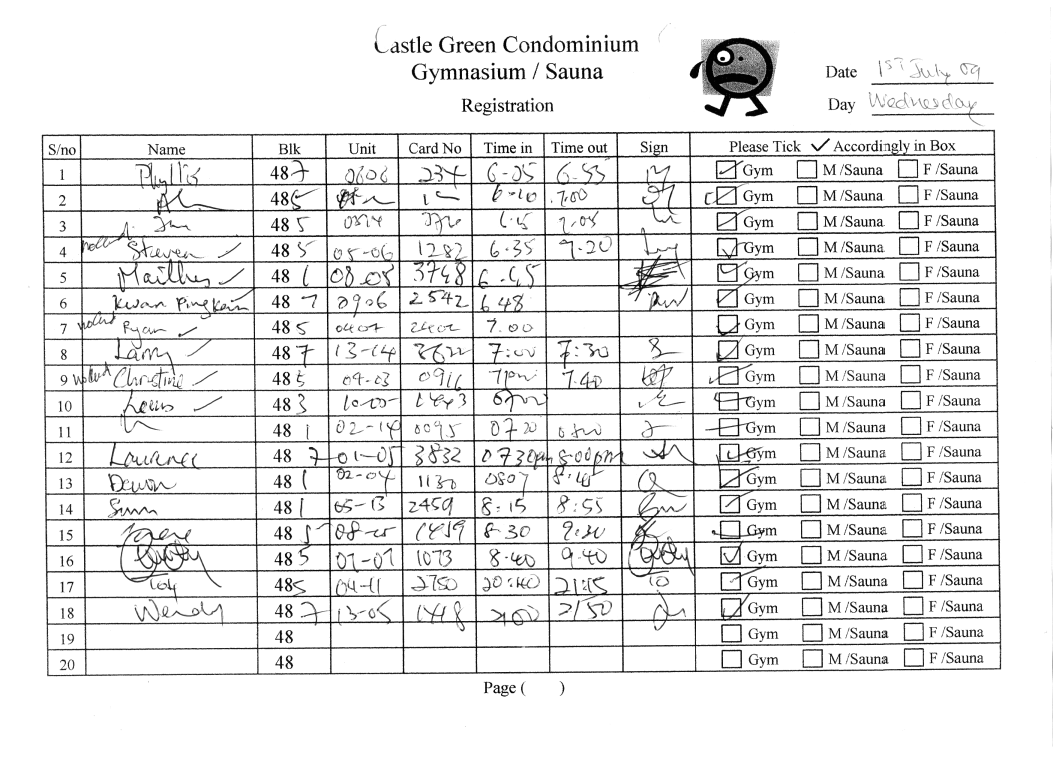 Castle Green Condominium
Gymnasium / Sauna
Registration
Date 1ST July 09
Day Wednesday
S/no Name Blk Unit Card No Time in Time out Sign Please Tick ✓ Accordingly in Box
1 Phyllis 487 0608 234 6-25 6-55 Gym M /Sauna F /Sauna
2 485 6-10 7.00 Gym M /Sauna F /Sauna
3 485 7.05 Gym M /Sauna F /Sauna
4 Steven 485 05-06 1282 6.35 7.20 Gym M /Sauna F /Sauna
5 481 08.08 3748 6.45 Gym M /Sauna F /Sauna
6 Kwan 487 0906 2542 6 48 Gym M /Sauna F /Sauna
7 Ryan 485 0407 2402 7.00 Gym M /Sauna F /Sauna
8 Larry 487 13-14 7:00 7:30 Gym M /Sauna F /Sauna
9 Christine 485 04-03 0916 7pm 7.40 Gym M /Sauna F /Sauna
10 483 Gym M /Sauna F /Sauna
11 481 02-14 0095 0720 Gym M /Sauna F /Sauna
12 Laurence 487 01-05 3832 0730pm 8:00pm Gym M /Sauna F /Sauna
13 Devon 481 02-04 1130 0807 8:45 Gym M /Sauna F /Sauna
14 481 05-13 2459 8:15 8:55 Gym M /Sauna F /Sauna
15 485 1419 8-30 Gym M /Sauna F /Sauna
16 485 07-07 1073 8-40 9.40 Gym M /Sauna F /Sauna
17 485 04-11 2750 20:40 21:15 Gym M /Sauna F /Sauna
18 Wendy 487 13-05 1418 2150 Gym M /Sauna F /Sauna
19 48 Gym M /Sauna F /Sauna
20 48 Gym M /Sauna F /Sauna
Page ( )